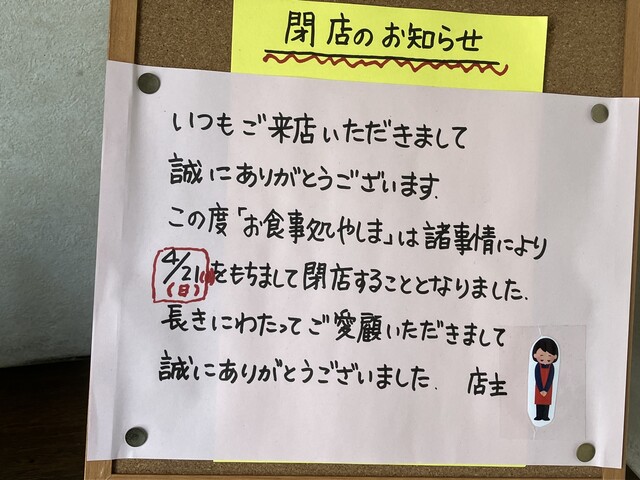 閉店のお知らせ
いつもご来店いただきまして
誠にありがとうございます.
この度「お食事処やしま」は諸事情により
4/21(日)をもちまして閉店することとなりました.
長きにわたってご愛顧いただきまして
誠にありがとうございました. 店主